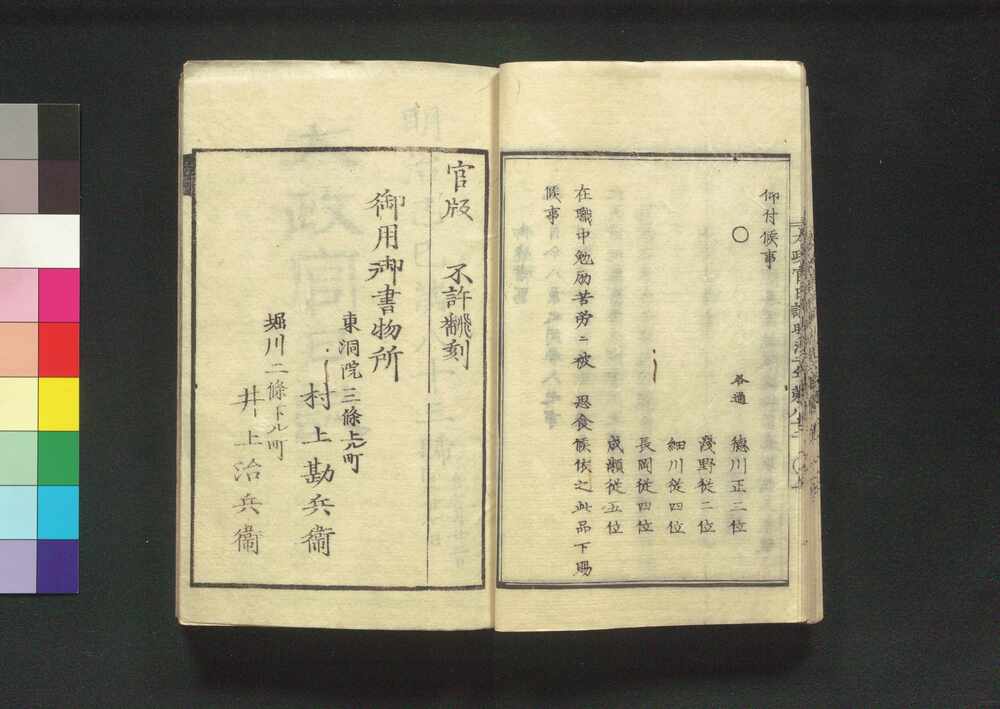 仰付候事
〇
各通
徳川正二位
淺野従二位
細川従四位
長岡従四位
成瀬従五位
在職中勉励苦労ニ被 思食候依之此品下賜
候事
官版 不許翻刻
御用御書物所
東洞院三條上ル町
村上勘兵衞
堀川二條下ル町
井上治兵衞